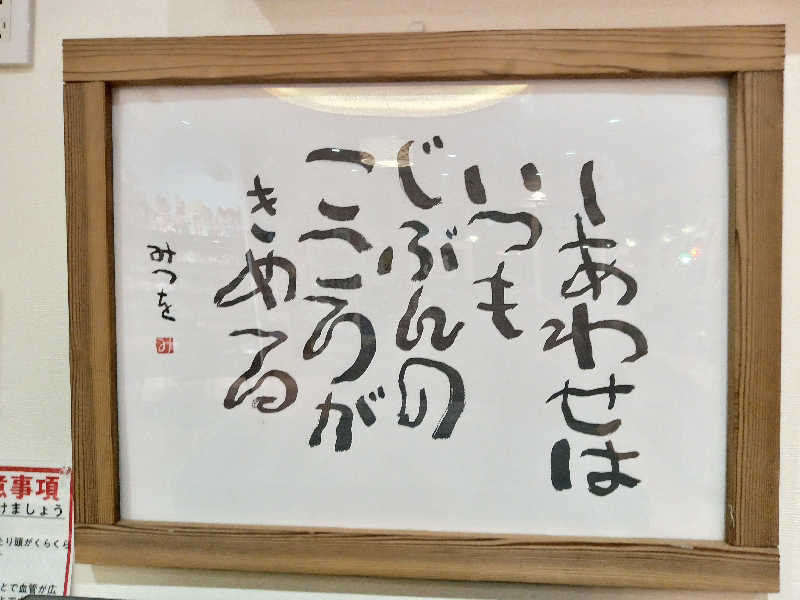 しあわせは
いつも
じぶんの
こころが
きめる
みつを
み
意事項
けましょう
たり頭がくらくら
とで血管が広